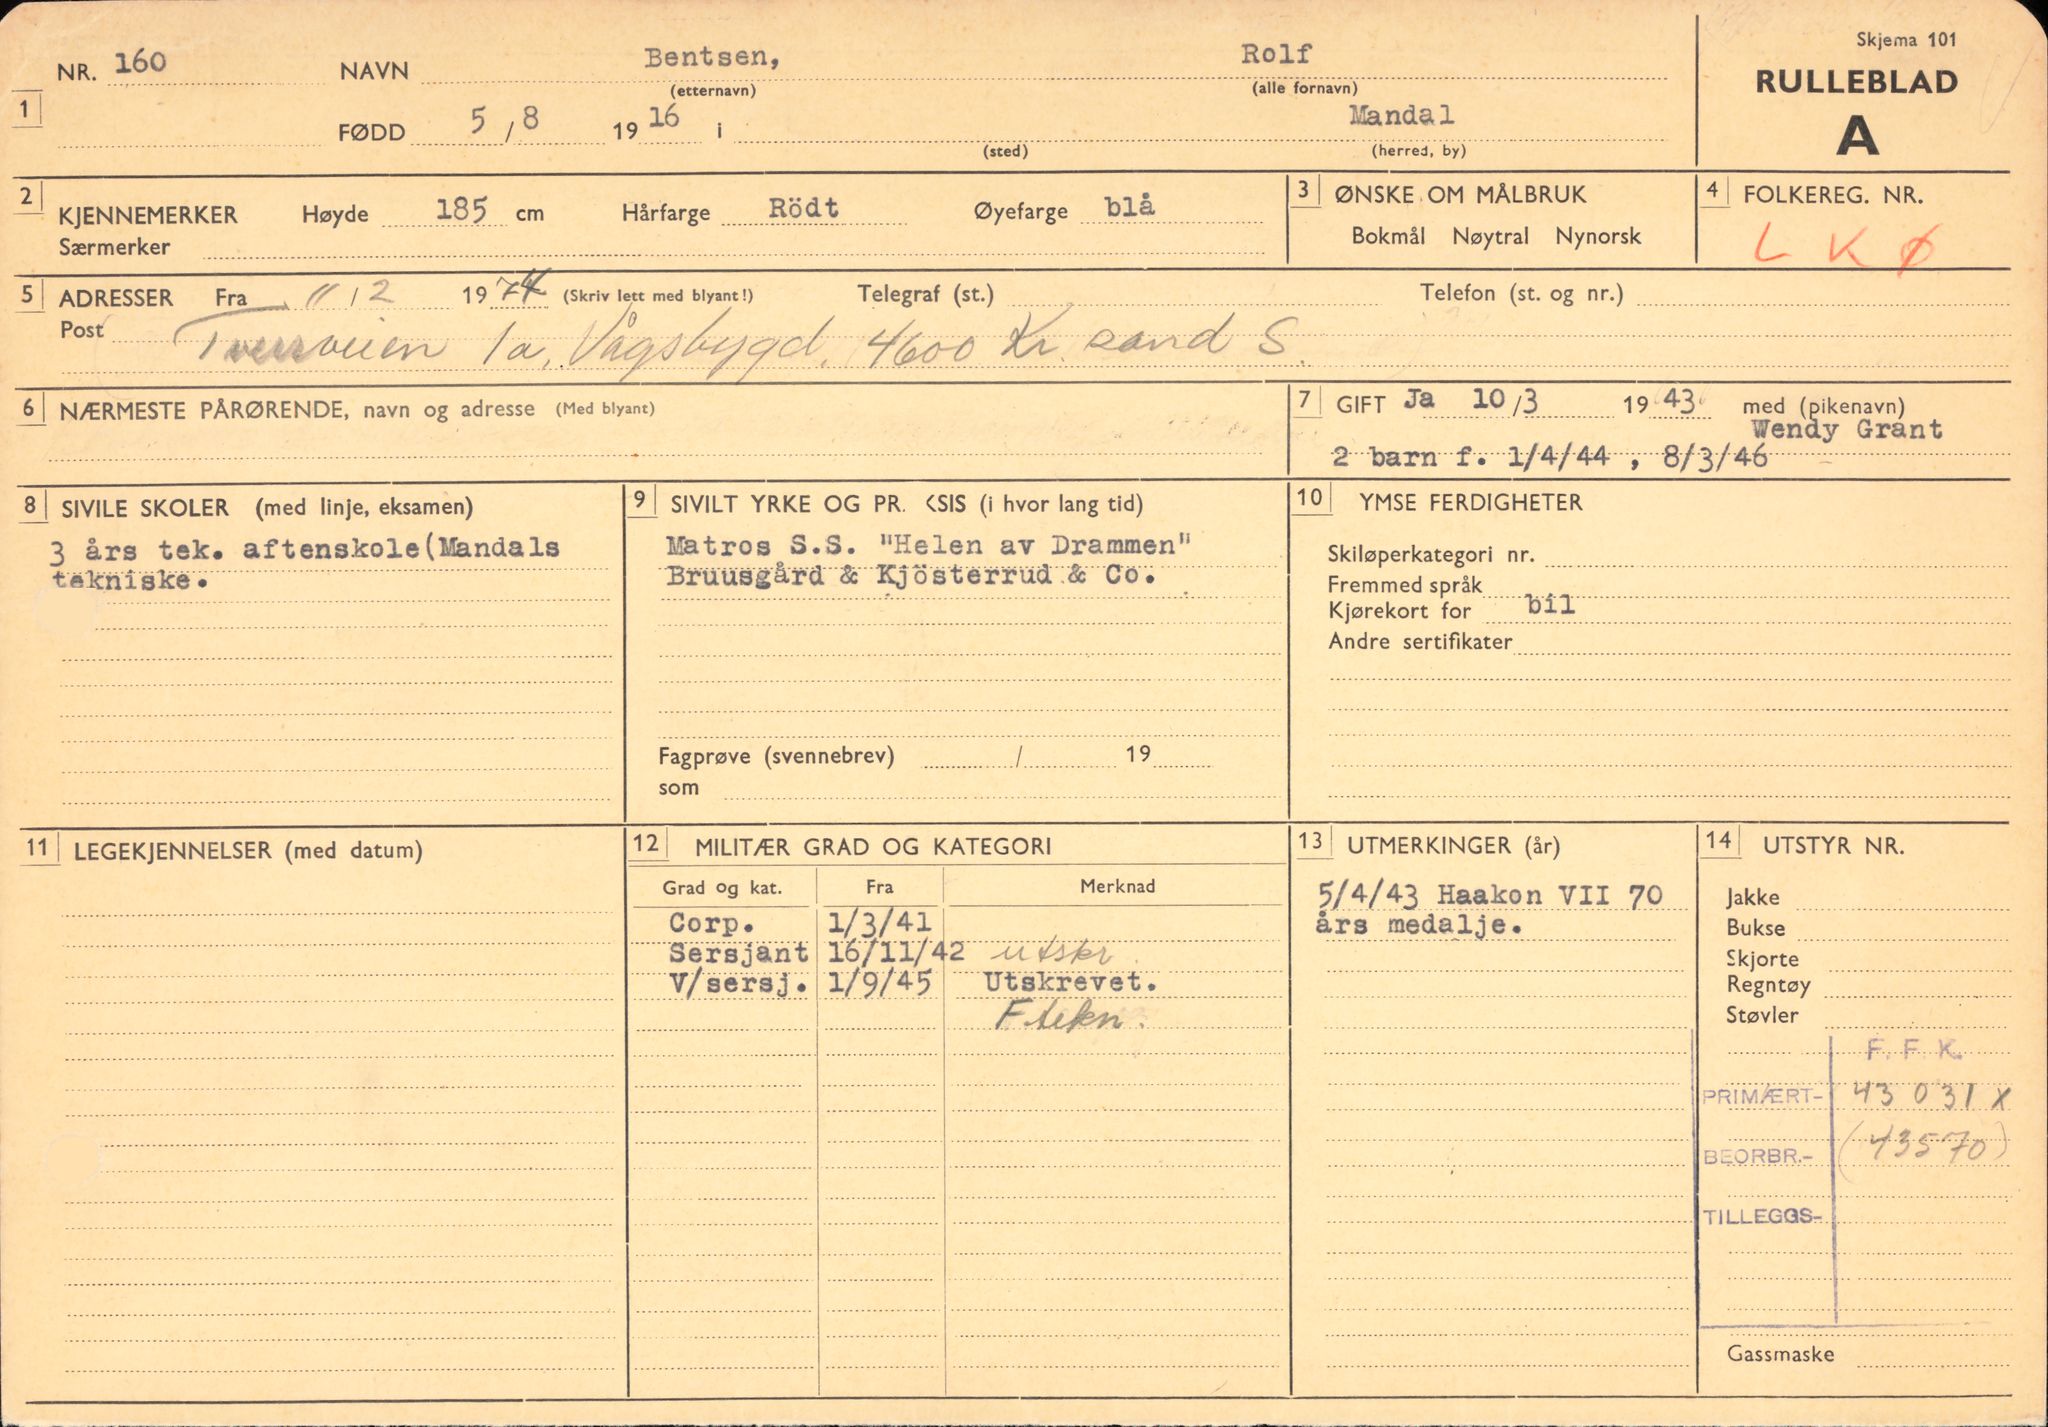 Skjema 101
NR. 160 NAVN Bentsen, Rolf
(etternavn) (alle fornavn)
RULLEBLAD
A
1
FØDD 5/8 1916 i Mandal
(sted) (herred, by)
2 KJENNEMERKER Høyde 185 cm Hårfarge Rödt Øyefarge blå
Særmerker
3 ØNSKE OM MÅLBRUK
Bokmål Nøytral Nynorsk
4 FOLKEREG. NR.
L K Ø
5 ADRESSER Fra 12 1974 (Skriv lett med blyant!) Telegraf (st.) Telefon (st. og nr.)
Post Tverrveien 1a, Vågsbygd, 4600 Kr. sand S.
6 NÆRMESTE PÅRØRENDE, navn og adresse (Med blyant)
7 GIFT Ja 10/3 1943 med (pikenavn)
Wendy Grant
2 barn f. 1/4/44 , 8/3/46
8 SIVILE SKOLER (med linje, eksamen)
3 års tek. aftenskole(Mandals
tekniske.
9 SIVILT YRKE OG PR. KSIS (i hvor lang tid)
Matros S.S. "Helen av Drammen"
Bruusgård & Kjösterrud & Co.
Fagprøve (svennebrev) / 19
som
10 YMSE FERDIGHETER
Skiløperkategori nr.
Fremmed språk
Kjørekort for bil
Andre sertifikater
11 LEGEKJENNELSER (med datum)
12 MILITÆR GRAD OG KATEGORI
Grad og kat. Fra Merknad
Corp. 1/3/41
Sersjant 16/11/42 utskr.
V/sersj. 1/9/45 Utskrevet.
F.tekn.
13 UTMERKINGER (år)
5/4/43 Haakon VII 70
års medalje.
14 UTSTYR NR.
Jakke
Bukse
Skjorte
Regntøy
Støvler
F. F. K.
PRIMÆRT- 43 031 x
BEORBR.- (43570)
TILLEGGS-
Gassmaske